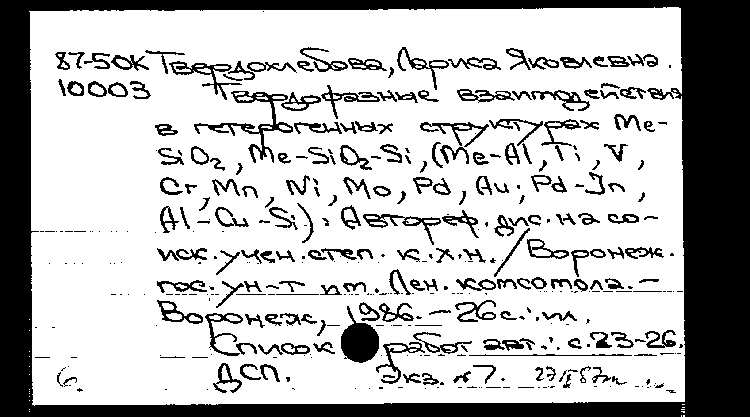 87-50К Твердохлебова, Лариса Яковлевна.
10003 Твердофазные взаимодействия
в гетерогенных структурах Me-
SiO2, Me-SiO2-Si, (Me-Al, Ti, V,
Cr, Mn, Ni, Mo, Pd, Au; Pd-In,
Al-Cu-Si): Автореф. дис. на со-
иск. учен. степ. к.х.н. / Воронеж.
гос. ун-т им. Лен. комсомола. -
Воронеж, 1986. - 26с.: ил.
Список работ авт.: с.23-26.
6. ДСП. Экз. №7.